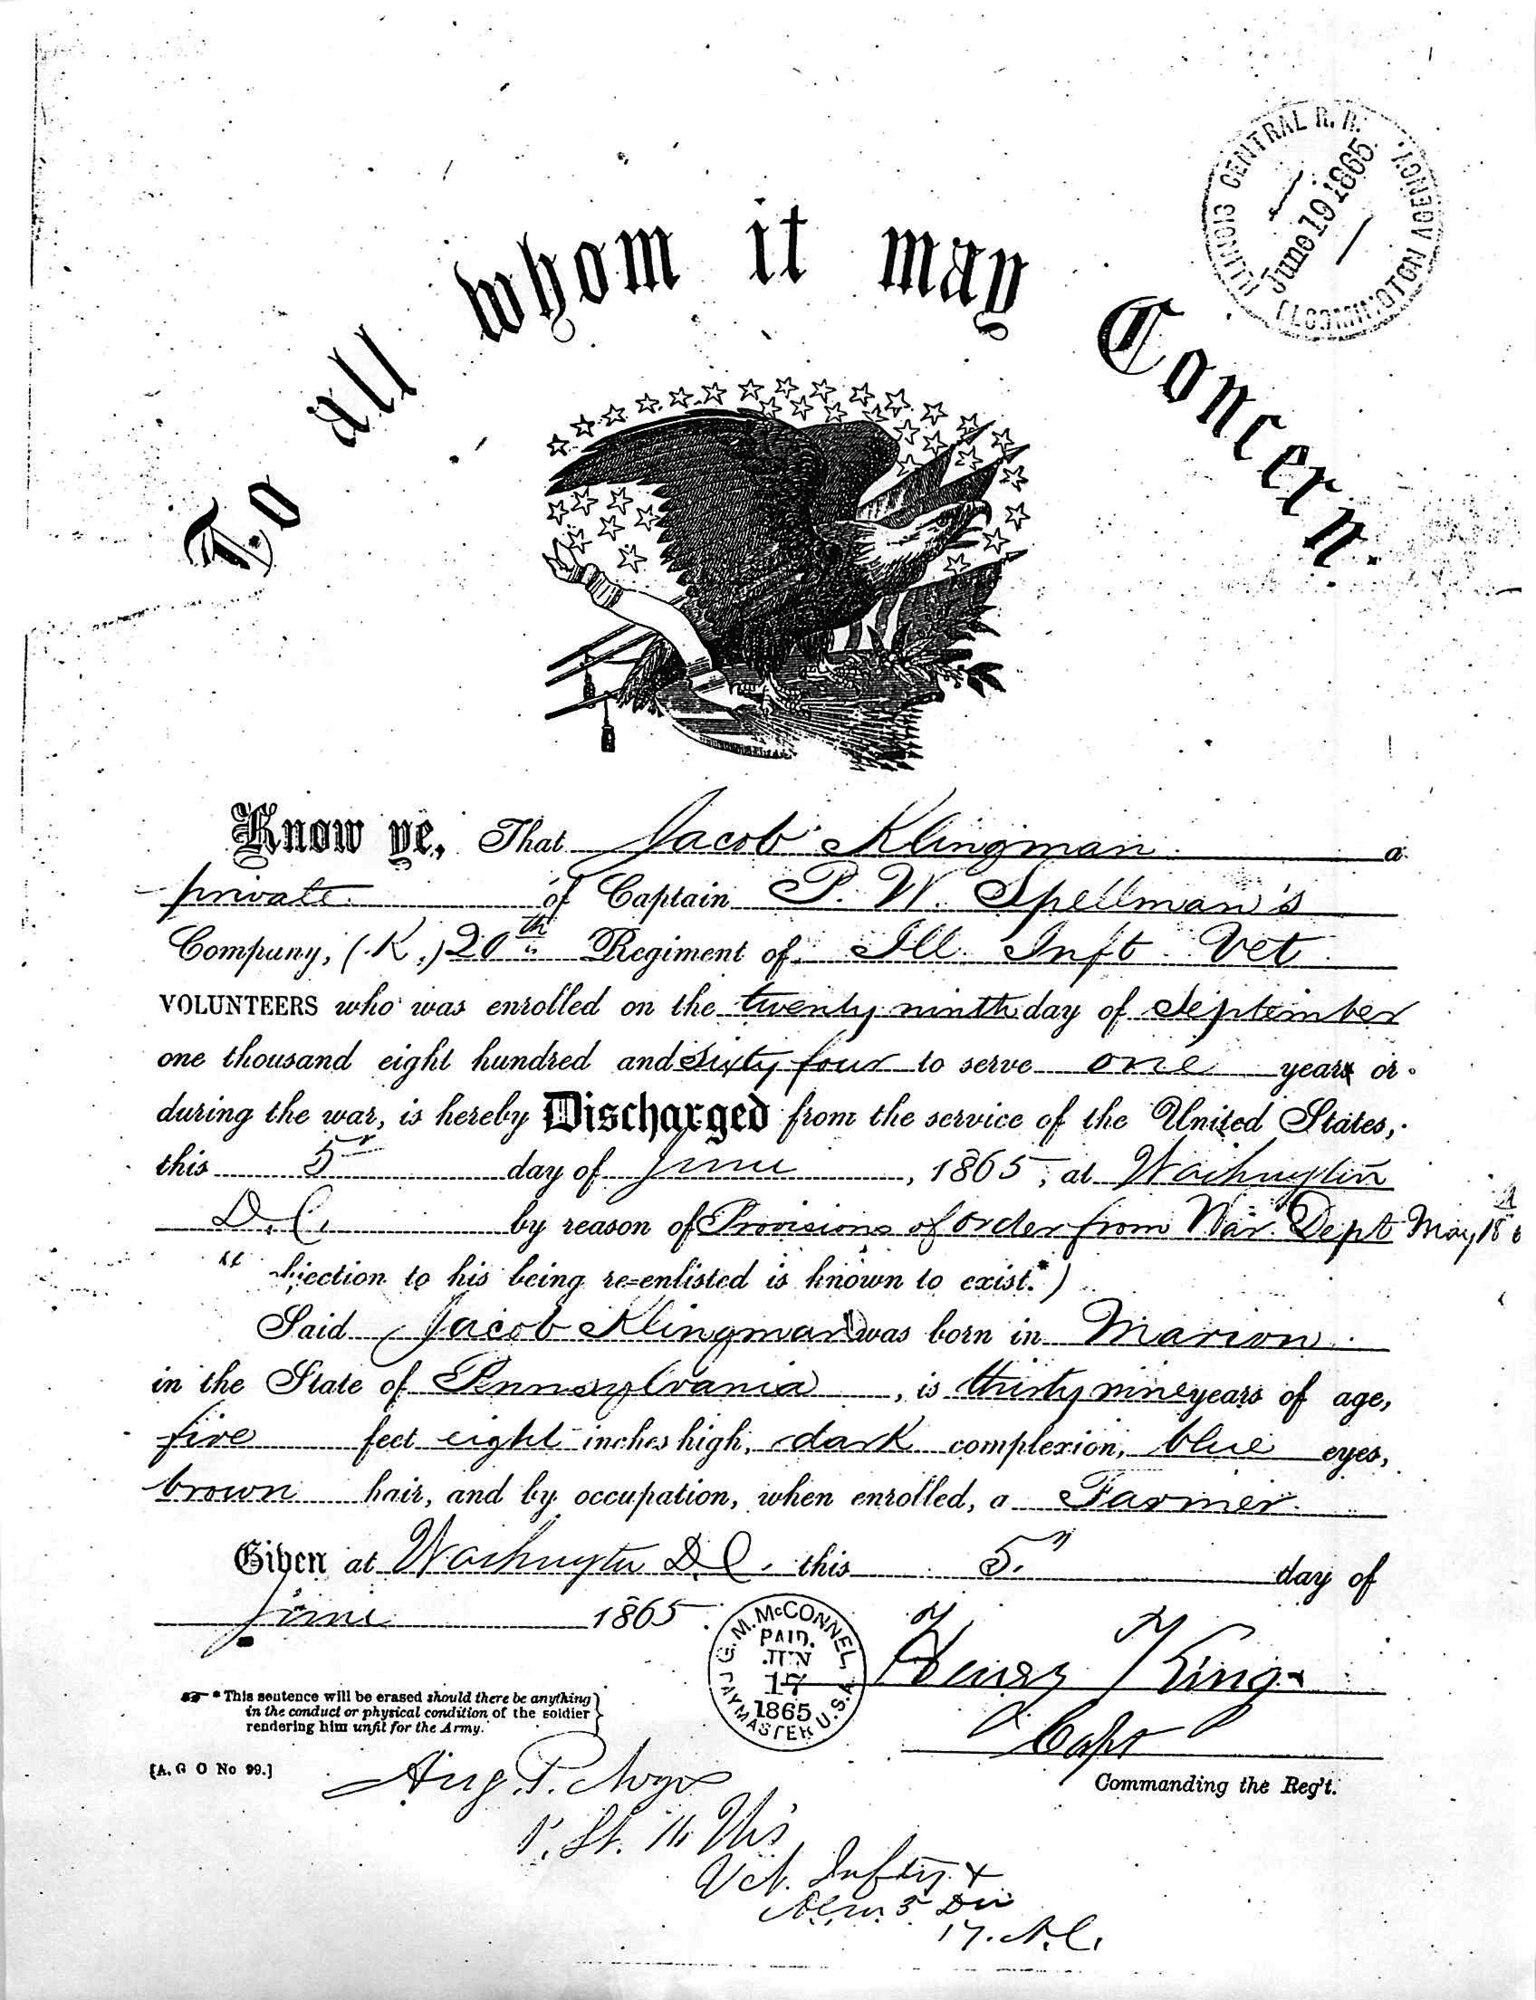 ILLINOIS CENTRAL R. R.
June 19 1865
BLOOMINGTON AGENCY.
To all whom it may Concern.
Know ye, That Jacob Klingman a
private of Captain P. W. Spellman's
Company, (K,) 20th Regiment of Ill. Inft Vet
VOLUNTEERS who was enrolled on the twenty ninth day of September
one thousand eight hundred and sixty four to serve one years or
during the war, is hereby Discharged from the service of the United States,
this 5" day of June, 1865, at Washington
D.C. by reason of Provisions of order from War Dept May 18
jection to his being re-enlisted is known to exist.*)
Said Jacob Klingman was born in Marion
in the State of Pennsylvania, is thirty nine years of age,
five feet eight inches high, dark complexion, blue eyes,
brown hair, and by occupation, when enrolled, a Farmer.
Given at Washington D.C. this 5" day of
June 1865.
G. M. McCONNEL,
PAID.
JUN
17
1865
PAYMASTER U.S.A.
Henry King
Capt
Commanding the Reg't.
* This sentence will be erased should there be anything
in the conduct or physical condition of the soldier
rendering him unfit for the Army.
[A. G O No 99.]
Aug. P.
Lt. 16 Wis
Vet. Inftry &
3 Div
17. A.C.